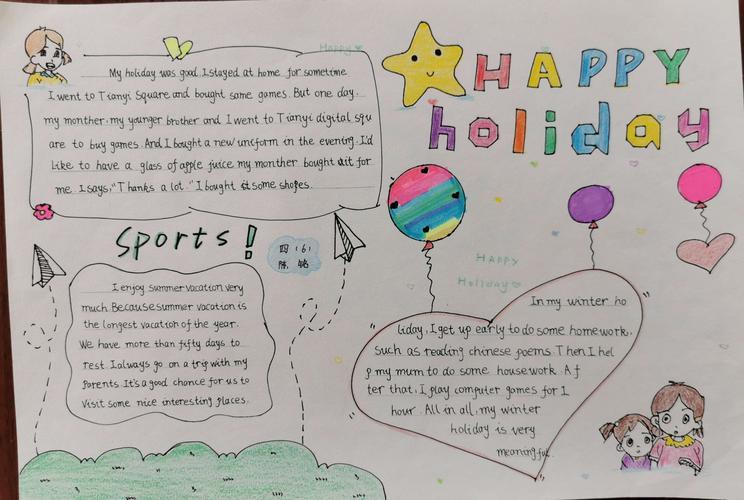 Happy
HAPPY
holiday
My holiday was good. I stayed at home for sometime
I went to Tianyi Square and bought some games. But one day,
my monther, my younger brother and I went to Tianyi digital squ
are to buy games. And I bought a new uniform in the evening. I'd
Like to have a glass of apple juice my monther bought it for
me. I says, "Thanks a lot." I bought some shopes.
Sports!
四(6)
陈
I enjoy summer vacation very
much. Because summer vacation is
the longest vacation of the year.
We have more than fifty days to
rest. I always go on a trip with my
parents. It's a good chance for us to
visit some nice interesting places.
HAPPY
Holiday
In my winter ho
liday, I get up early to do some homework,
such as reading chinese poems. Then I hel
p my mum to do some housework. Af
ter that, I play computer games for 1
hour. All in all, my winter
holiday is very
meaningful.